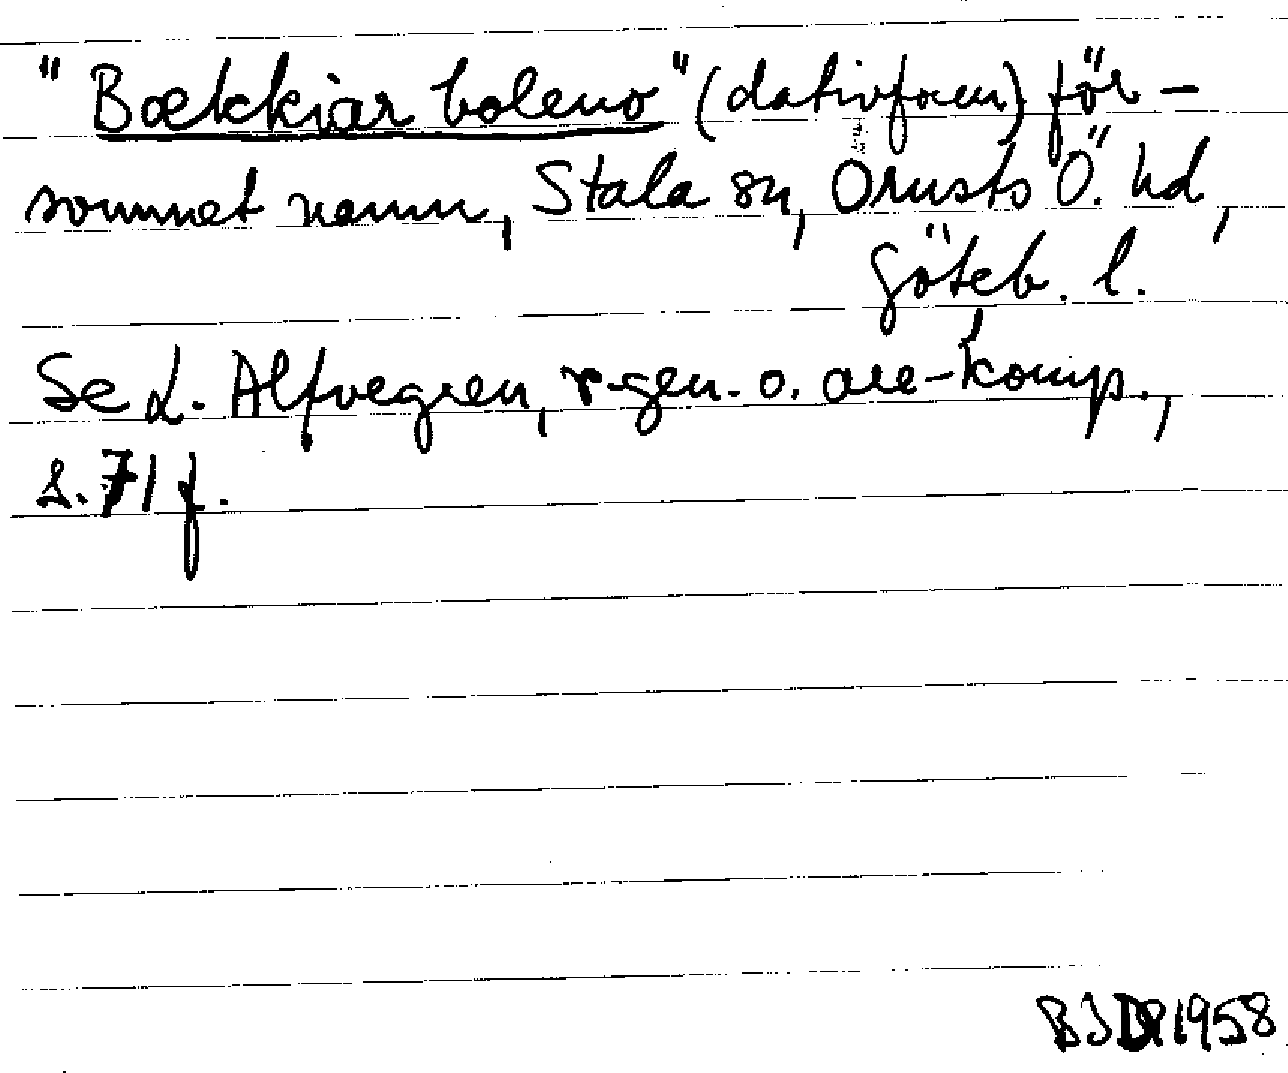 "Bækkiar boleno" (dativform) för-
svunnet namn, Stala sn, Orusts Ö. hd,
Göteb. l.
Se L. Alfvegren, r-gen. o. are-komp.,
s. 71 f.
1958